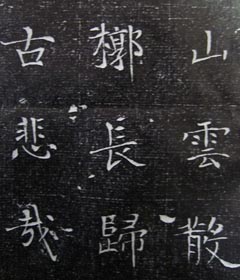 山雲散
槨長歸
古悲哉